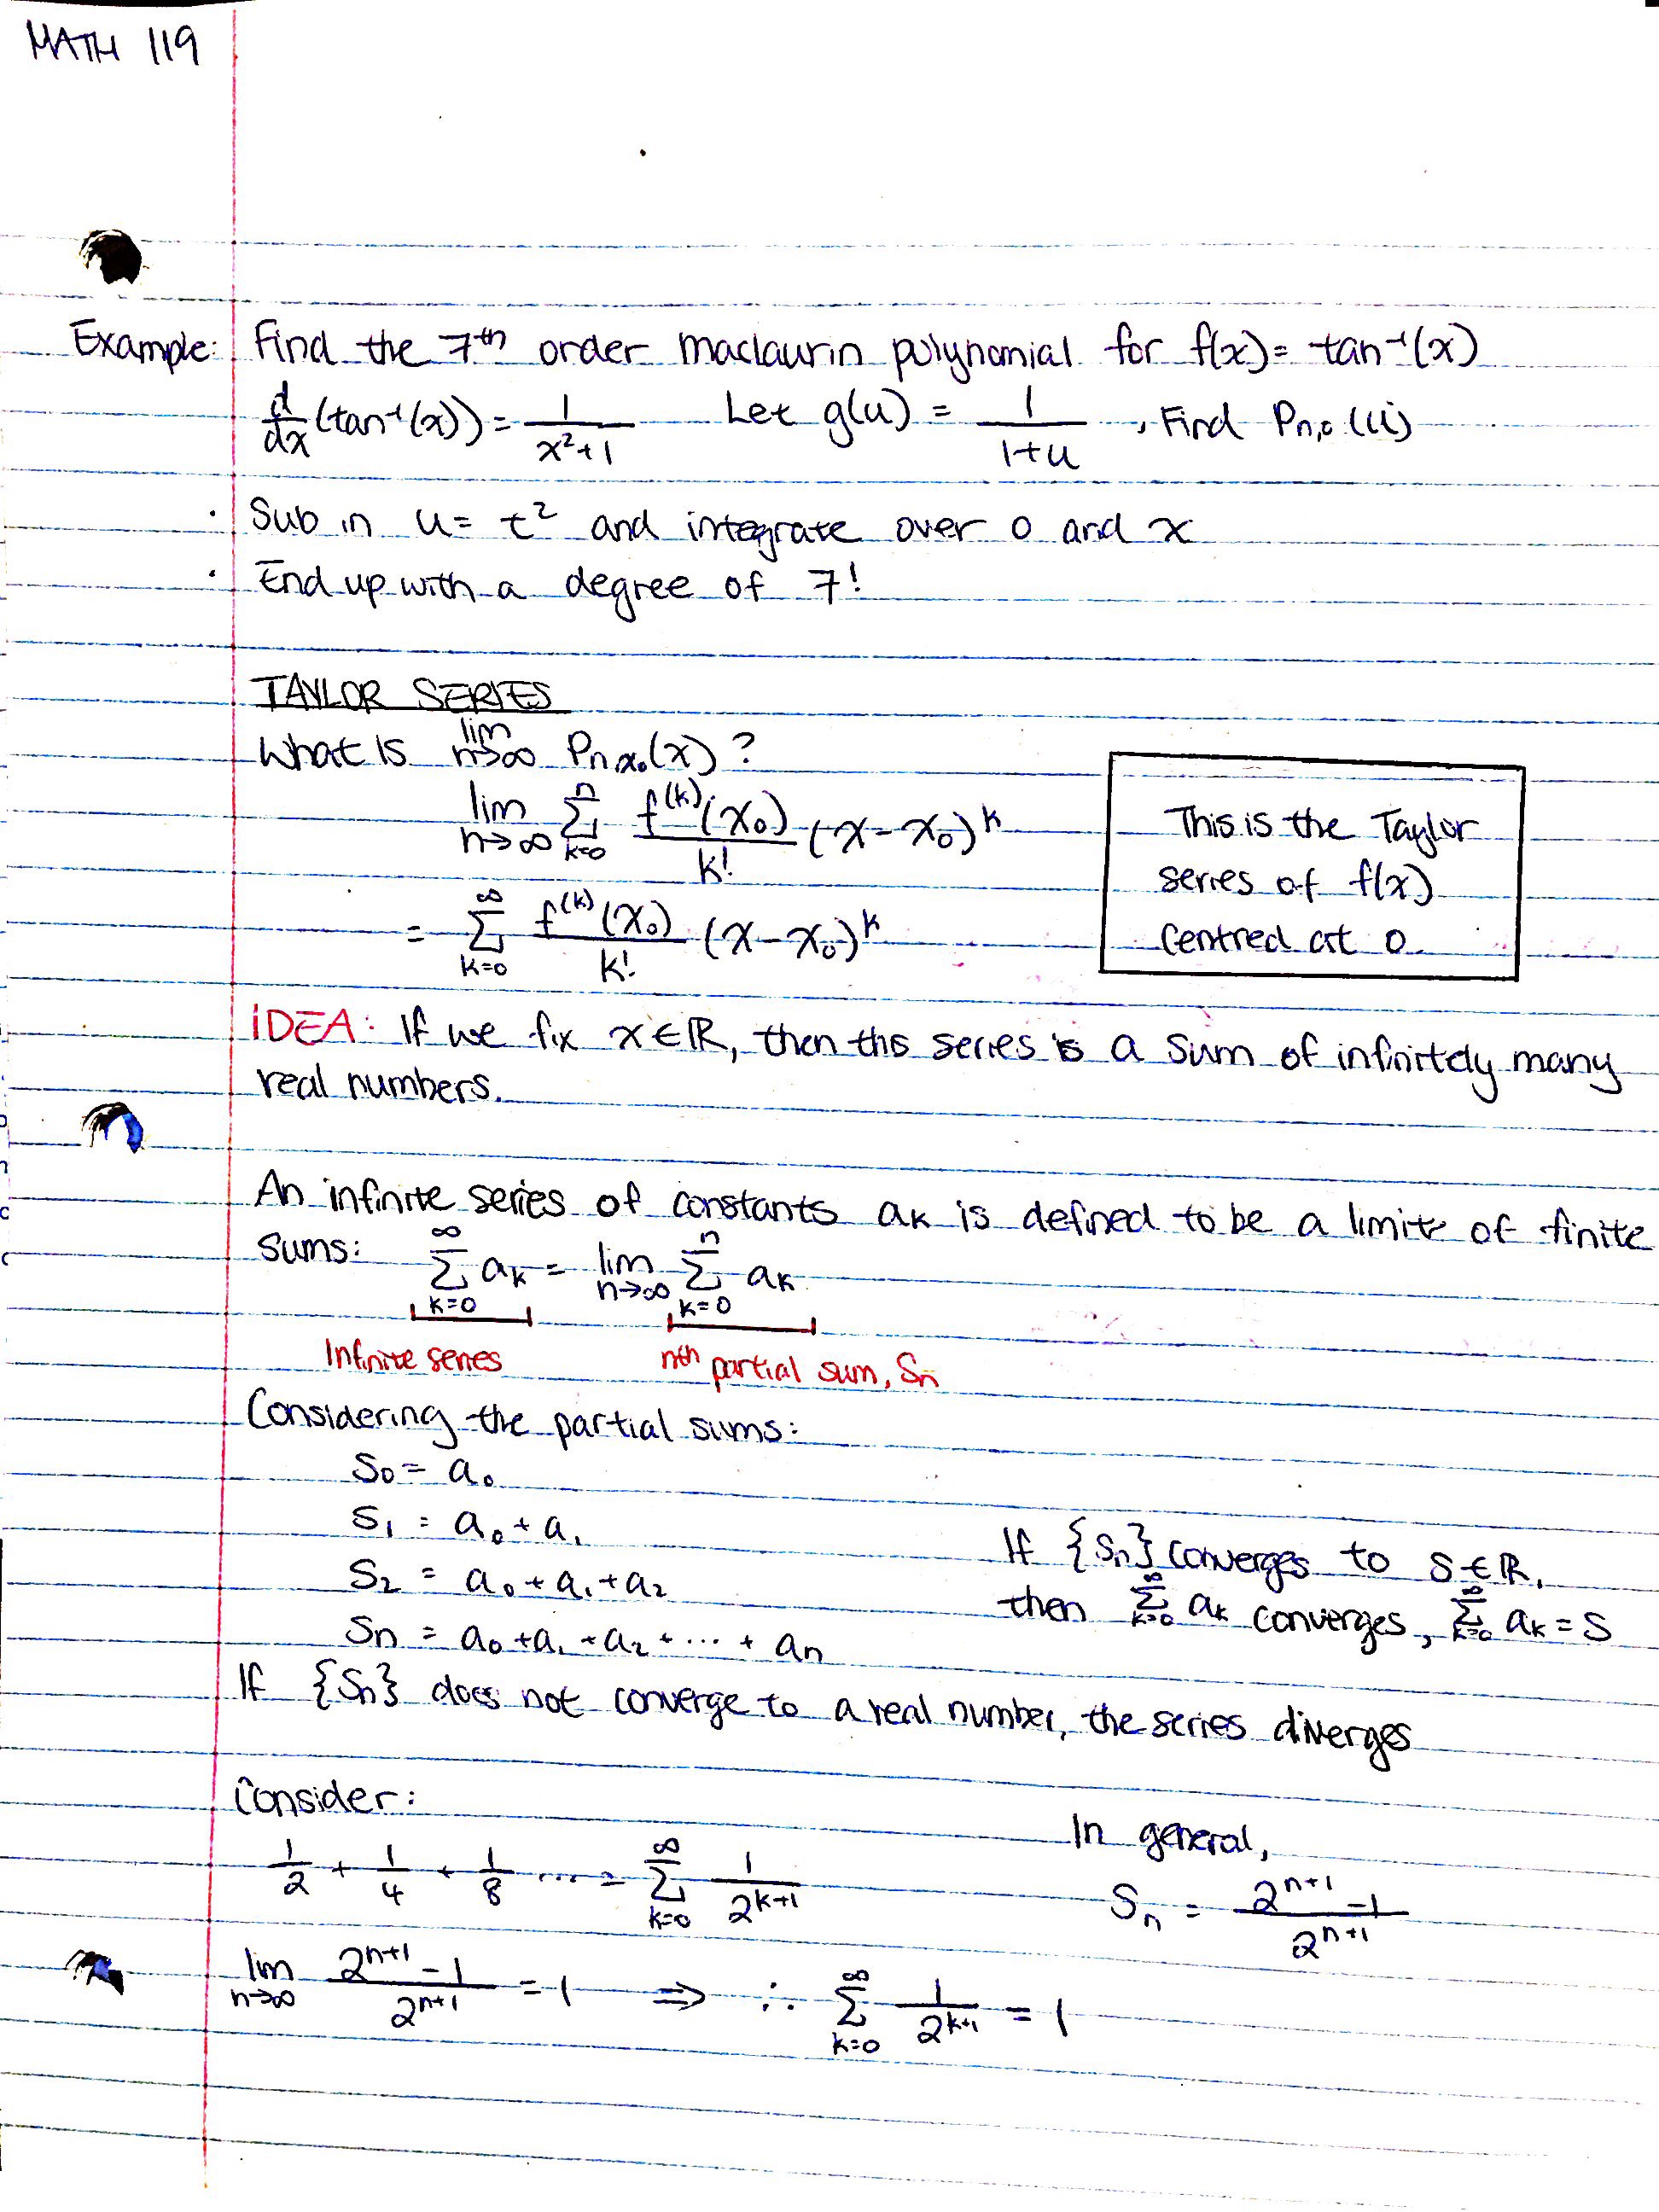 MATH 119
Example: Find the 7th order maclaurin polynomial for f(x) = tan⁻¹(x)
d/dx (tan⁻¹(x)) = 1/(x²+1) Let g(u) = 1/(1+u), Find Pn,0 (u)
· Sub in u = t² and integrate over 0 and x
· End up with a degree of 7!
TAYLOR SERIES
What is lim n→∞ Pn,x₀(x)?
lim n→∞ Σ k=0 n f⁽ᵏ⁾(x₀)/k! (x-x₀)ᵏ
= Σ k=0 ∞ f⁽ᵏ⁾(x₀)/k! (x-x₀)ᵏ
This is the Taylor
series of f(x)
Centred at 0
IDEA: If we fix x∈ℝ, then this series is a sum of infinitely many
real numbers.
An infinite series of constants aₖ is defined to be a limit of finite
sums: Σ k=0 ∞ aₖ = lim n→∞ Σ k=0 n aₖ
Infinite series nth partial sum, Sn
Considering the partial sums:
S₀ = a₀
S₁ = a₀ + a₁
S₂ = a₀ + a₁ + a₂
Sn = a₀ + a₁ + a₂ + ... + an
If {Sn} converges to S∈ℝ,
then Σ k=0 ∞ aₖ converges, Σ k=0 ∞ aₖ = S
If {Sn} does not converge to a real number, the series diverges
Consider:
1/2 + 1/4 + 1/8 ... = Σ k=0 ∞ 1/2ᵏ⁺¹
In general,
Sn = (2ⁿ⁺¹ - 1)/2ⁿ⁺¹
lim n→∞ (2ⁿ⁺¹ - 1)/2ⁿ⁺¹ = 1 ⇒ ∴ Σ k=0 ∞ 1/2ᵏ⁺¹ = 1